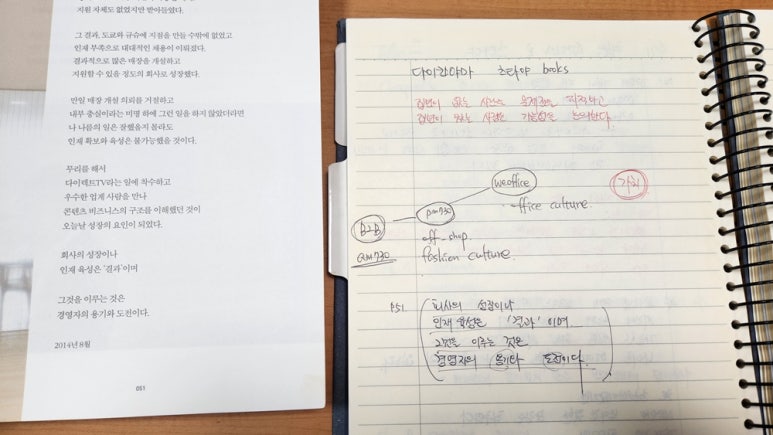 지원 자체도 없었지만 받아들였다.
그 결과, 도쿄와 규슈에 지점을 만들 수밖에 없었고
인재 부족으로 대대적인 채용이 이뤄졌다.
결과적으로 많은 매장을 개설하고
지원할 수 있을 정도의 회사로 성장했다.
만일 매장 개설 의뢰를 거절하고
내부 충실이라는 미명 하에 그런 일을 하지 않았더라면
나 나름의 일은 잘했을지 몰라도
인재 확보와 육성은 불가능했을 것이다.
무리를 해서
다이렉트TV라는 일에 착수하고
우수한 업계 사람을 만나
콘텐츠 비즈니스의 구조를 이해했던 것이
오늘날 성장의 요인이 되었다.
회사의 성장이나
인재 육성은 '결과'이며
그것을 이루는 것은
경영자의 용기와 도전이다.
2014년 8월
051
다이칸야마 츠타야 books
집념이 없는 사람은 문제점을 지적하고
집념이 있는 사람은 가능성을 논의한다.
weoffice
가치
office culture.
pm730
B2B
off-shop
am730
fashion culture.
P51
회사의 성장이나
인재 육성은 '결과'이며
그것을 이루는 것은
경영자의 용기와 도전이다.